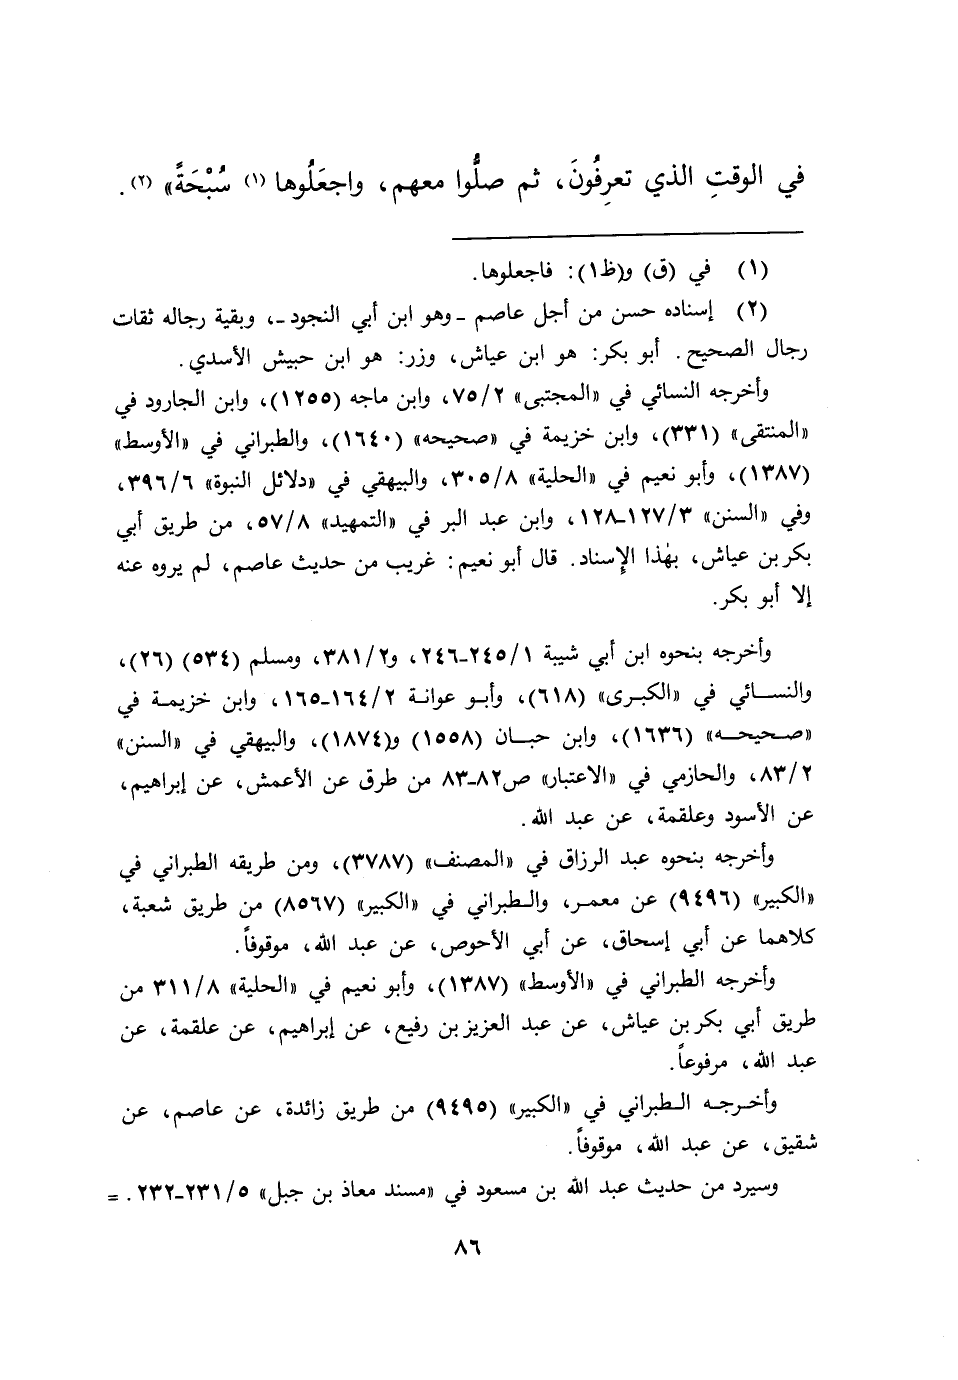 في الوقتِ الذي تعرِفُونَ، ثم صلُّوا معهم، واجعَلُوها (١) سُبْحَةً» (٢).
(١) في (ق) و(ظ١): فاجعلوها.
(٢) إسناده حسن من أجل عاصم ـ وهو ابن أبي النجود ـ، وبقية رجاله ثقات
رجال الصحيح. أبو بكر: هو ابن عياش، وزر: هو ابن حبيش الأسدي.
وأخرجه النسائي في «المجتبى» ٧٥/٢، وابن ماجه (١٢٥٥)، وابن الجارود في
«المنتقى» (٣٣١)، وابن خزيمة في «صحيحه» (١٦٤٠)، والطبراني في «الأوسط»
(١٣٨٧)، وأبو نعيم في «الحلية» ٣٠٥/٨، والبيهقي في «دلائل النبوة» ٣٩٦/٦،
وفي «السنن» ١٢٧/٣ـ١٢٨، وابن عبد البر في «التمهيد» ٥٧/٨، من طريق أبي
بكر بن عياش، بهٰذا الإسناد. قال أبو نعيم: غريب من حديث عاصم، لم يروه عنه
إلا أبو بكر.
وأخرجه بنحوه ابن أبي شيبة ٢٤٥/١ـ٢٤٦، و٣٨١/٢، ومسلم (٥٣٤) (٢٦)،
والنسائي في «الكبرى» (٦١٨)، وأبو عوانة ١٦٤/٢ـ١٦٥، وابن خزيمة في
«صحيحه» (١٦٣٦)، وابن حبان (١٥٥٨) و(١٨٧٤)، والبيهقي في «السنن»
٨٣/٢، والحازمي في «الاعتبار» ص٨٢ـ٨٣ من طرق عن الأعمش، عن إبراهيم،
عن الأسود وعلقمة، عن عبد الله.
وأخرجه بنحوه عبد الرزاق في «المصنف» (٣٧٨٧)، ومن طريقه الطبراني في
«الكبير» (٩٤٩٦) عن معمر، والطبراني في «الكبير» (٨٥٦٧) من طريق شعبة،
كلاهما عن أبي إسحاق، عن أبي الأحوص، عن عبد الله، موقوفاً.
وأخرجه الطبراني في «الأوسط» (١٣٨٧)، وأبو نعيم في «الحلية» ٣١١/٨ من
طريق أبي بكر بن عياش، عن عبد العزيز بن رفيع، عن إبراهيم، عن علقمة، عن
عبد الله، مرفوعاً.
وأخرجه الطبراني في «الكبير» (٩٤٩٥) من طريق زائدة، عن عاصم، عن
شقيق، عن عبد الله، موقوفاً.
وسيرد من حديث عبد الله بن مسعود في «مسند معاذ بن جبل» ٢٣١/٥ـ٢٣٢. =
٨٦